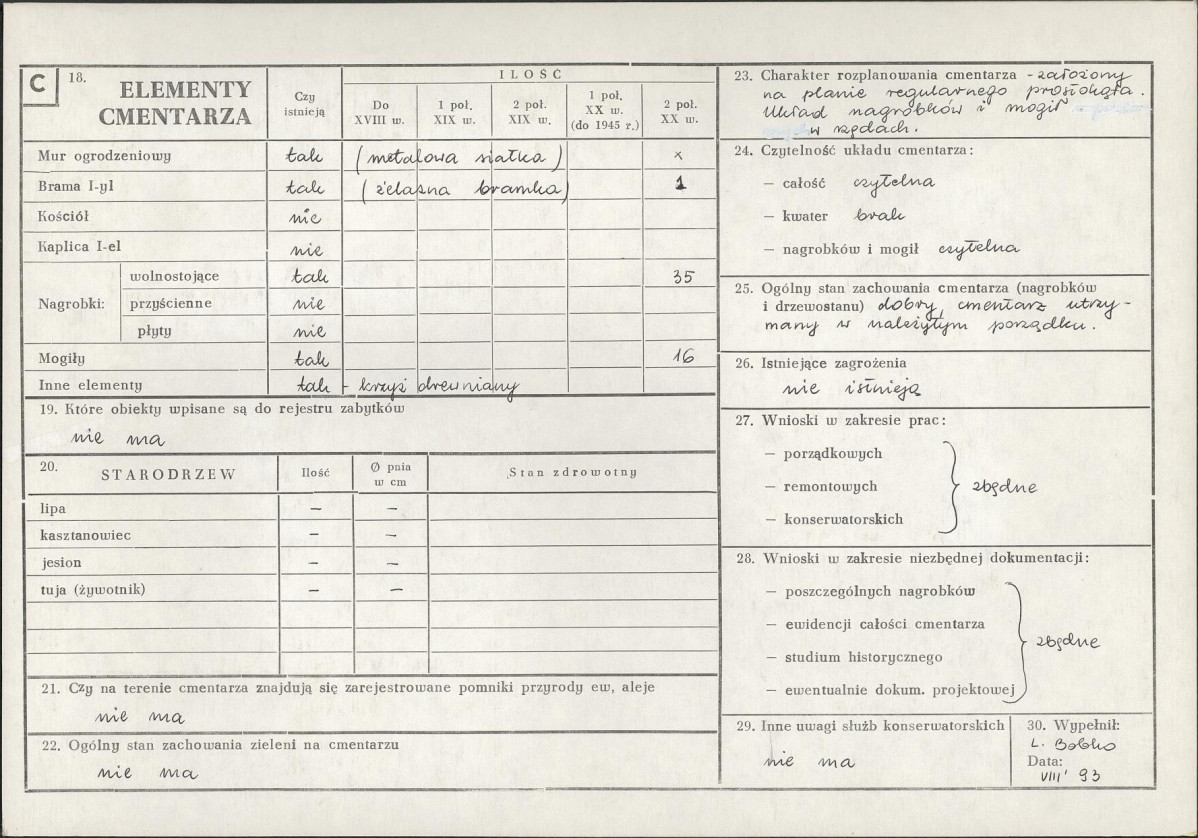 C 18. ELEMENTY CMENTARZA
Czy istnieją
ILOŚĆ
Do XVIII w.
1 poł. XIX w.
2 poł. XIX w.
1 poł. XX w. (do 1945 r.)
2 poł. XX w.
Mur ogrodzeniowy tak (metalowa siatka) x
Brama I-yl tak (żelazna bramka) 1
Kościół nie
Kaplica I-el nie
Nagrobki:
wolnostojące tak 35
przyścienne nie
płyty nie
Mogiły tak 16
Inne elementy tak - krzyż drewniany
19. Które obiekty wpisane są do rejestru zabytków
nie ma
20. STARODRZEW Ilość Ø pnia w cm Stan zdrowotny
lipa – –
kasztanowiec – –
jesion – –
tuja (żywotnik) – –
21. Czy na terenie cmentarza znajdują się zarejestrowane pomniki przyrody ew, aleje
nie ma
22. Ogólny stan zachowania zieleni na cmentarzu
nie ma
23. Charakter rozplanowania cmentarza - założony
na planie regularnego prostokąta.
Układ nagrobków i mogił
w rzędach.
24. Czytelność układu cmentarza:
– całość czytelna
– kwater brak
– nagrobków i mogił czytelna
25. Ogólny stan zachowania cmentarza (nagrobków
i drzewostanu) dobry, cmentarz utrzy-
many w należytym porządku.
26. Istniejące zagrożenia
nie istnieją
27. Wnioski w zakresie prac:
– porządkowych
– remontowych zbędne
– konserwatorskich
28. Wnioski w zakresie niezbędnej dokumentacji:
– poszczególnych nagrobków
– ewidencji całości cmentarza
zbędne
– studium historycznego
– ewentualnie dokum. projektowej
29. Inne uwagi służb konserwatorskich
nie ma
30. Wypełnił:
L. Bobko
Data:
VIII' 93